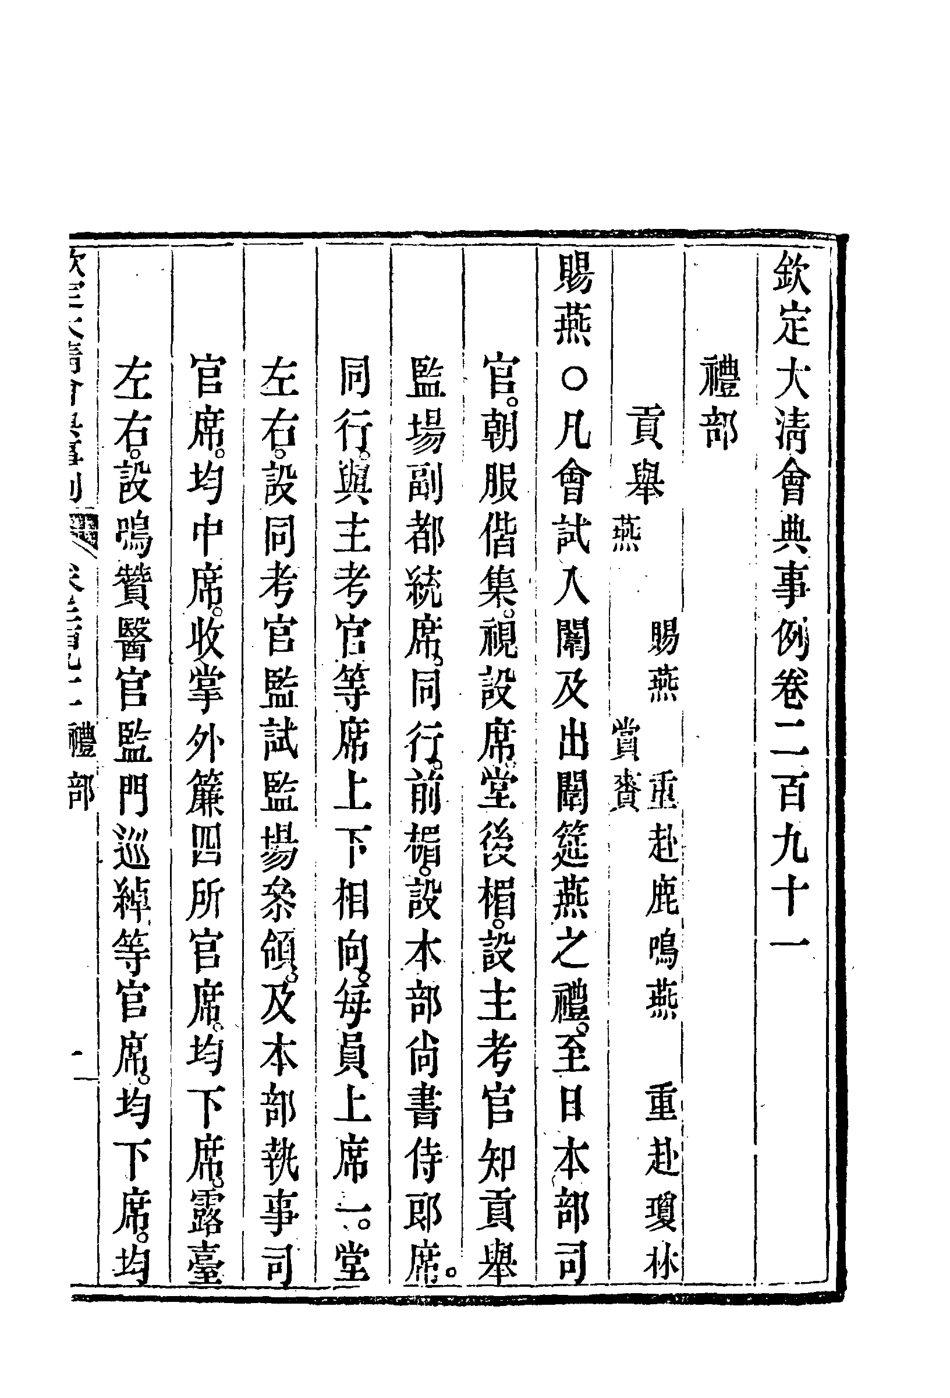 欽定大清會典事例卷二百九十一
禮部
貢舉 賜燕 重赴鹿鳴燕 重赴瓊林
燕 賞賚
賜燕○凡會試入闈及出闈筵燕之禮。至日本部司
官。朝服偕集。視設席。堂後楣。設主考官知貢舉
監場副都統席。同行。前楣。設本部尙書侍郎席。
同行。與主考官等席上下相向。每員上席一。堂
左右。設同考官監試監場叅領。及本部執事司
官席。均中席。收掌外簾四所官席。均下席。露臺
左右。設鳴贊醫官監門巡綽等官席。均下席。均
欽定大清會典事例 卷二百九十一 禮部 一